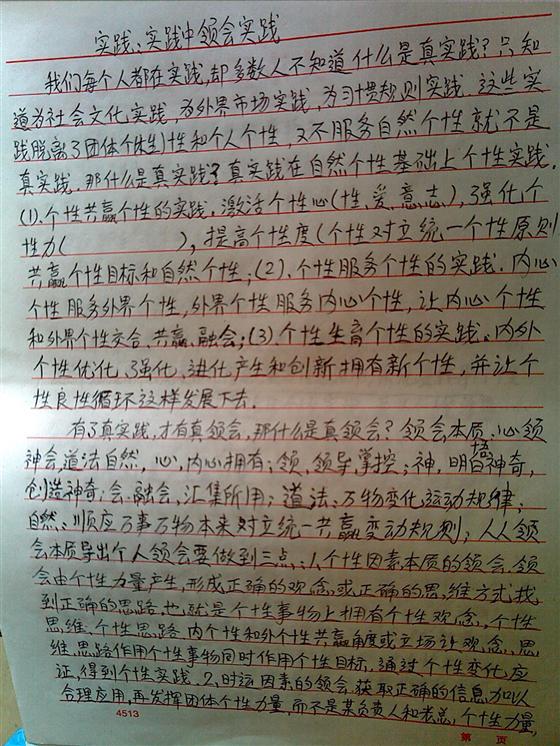 实践:实践中领会实践
我们每个人都在实践,却多数人不知道什么是真实践?只知
道为社会文化实践,为外界市场实践,为习惯规则实践.这些实
践脱离了团体个体生性和个人个性,又不服务自然个性就不是
真实践.那什么是真实践?真实践在自然个性基础上个性实践.
(1).个性共赢个性的实践.激活个性心(性、爱、意、志),强化个
性力( ),提高个性度(个性对立统一个性原则
共赢个性目标和自然个性;(2).个性服务个性的实践.内心
个性服务外界个性,外界个性服务内心个性,让内心个性
和外界个性交合、共赢、融会;(3).个性生育个性的实践.内外
个性优化、强化、进化产生和创新拥有新个性,并让个
性良性循环这样发展下去.
有了真实践,才有真领会,那什么是真领会?领会本质:心领
神会道法自然,心,内心拥有;领、领导、掌控;神,明白悟神奇,
创造神奇;会、融会,汇集所用;道法、万物变化运动规律;
自然、顺应万事万物本来对立统一共赢变动规则;人人领
会本质导出个人领会要做到三点:1.个性因素本质的领会.领
会由个性力量产生,形成正确的观念,或正确的思维方式找
到正确的思路.也就是个性事物上拥有个性观念,个性
思维、个性思路.内个性和外个性共赢角度或立场让观念、思
维、思路作用个性事物同时作用个性目标,通过个性变化应
证,得到个性实践.2.时运因素的领会.获取正确的信息加以
合理应用,再发挥团体个性力量,而不是某负责人和老总,个性力量,
4513
第 页